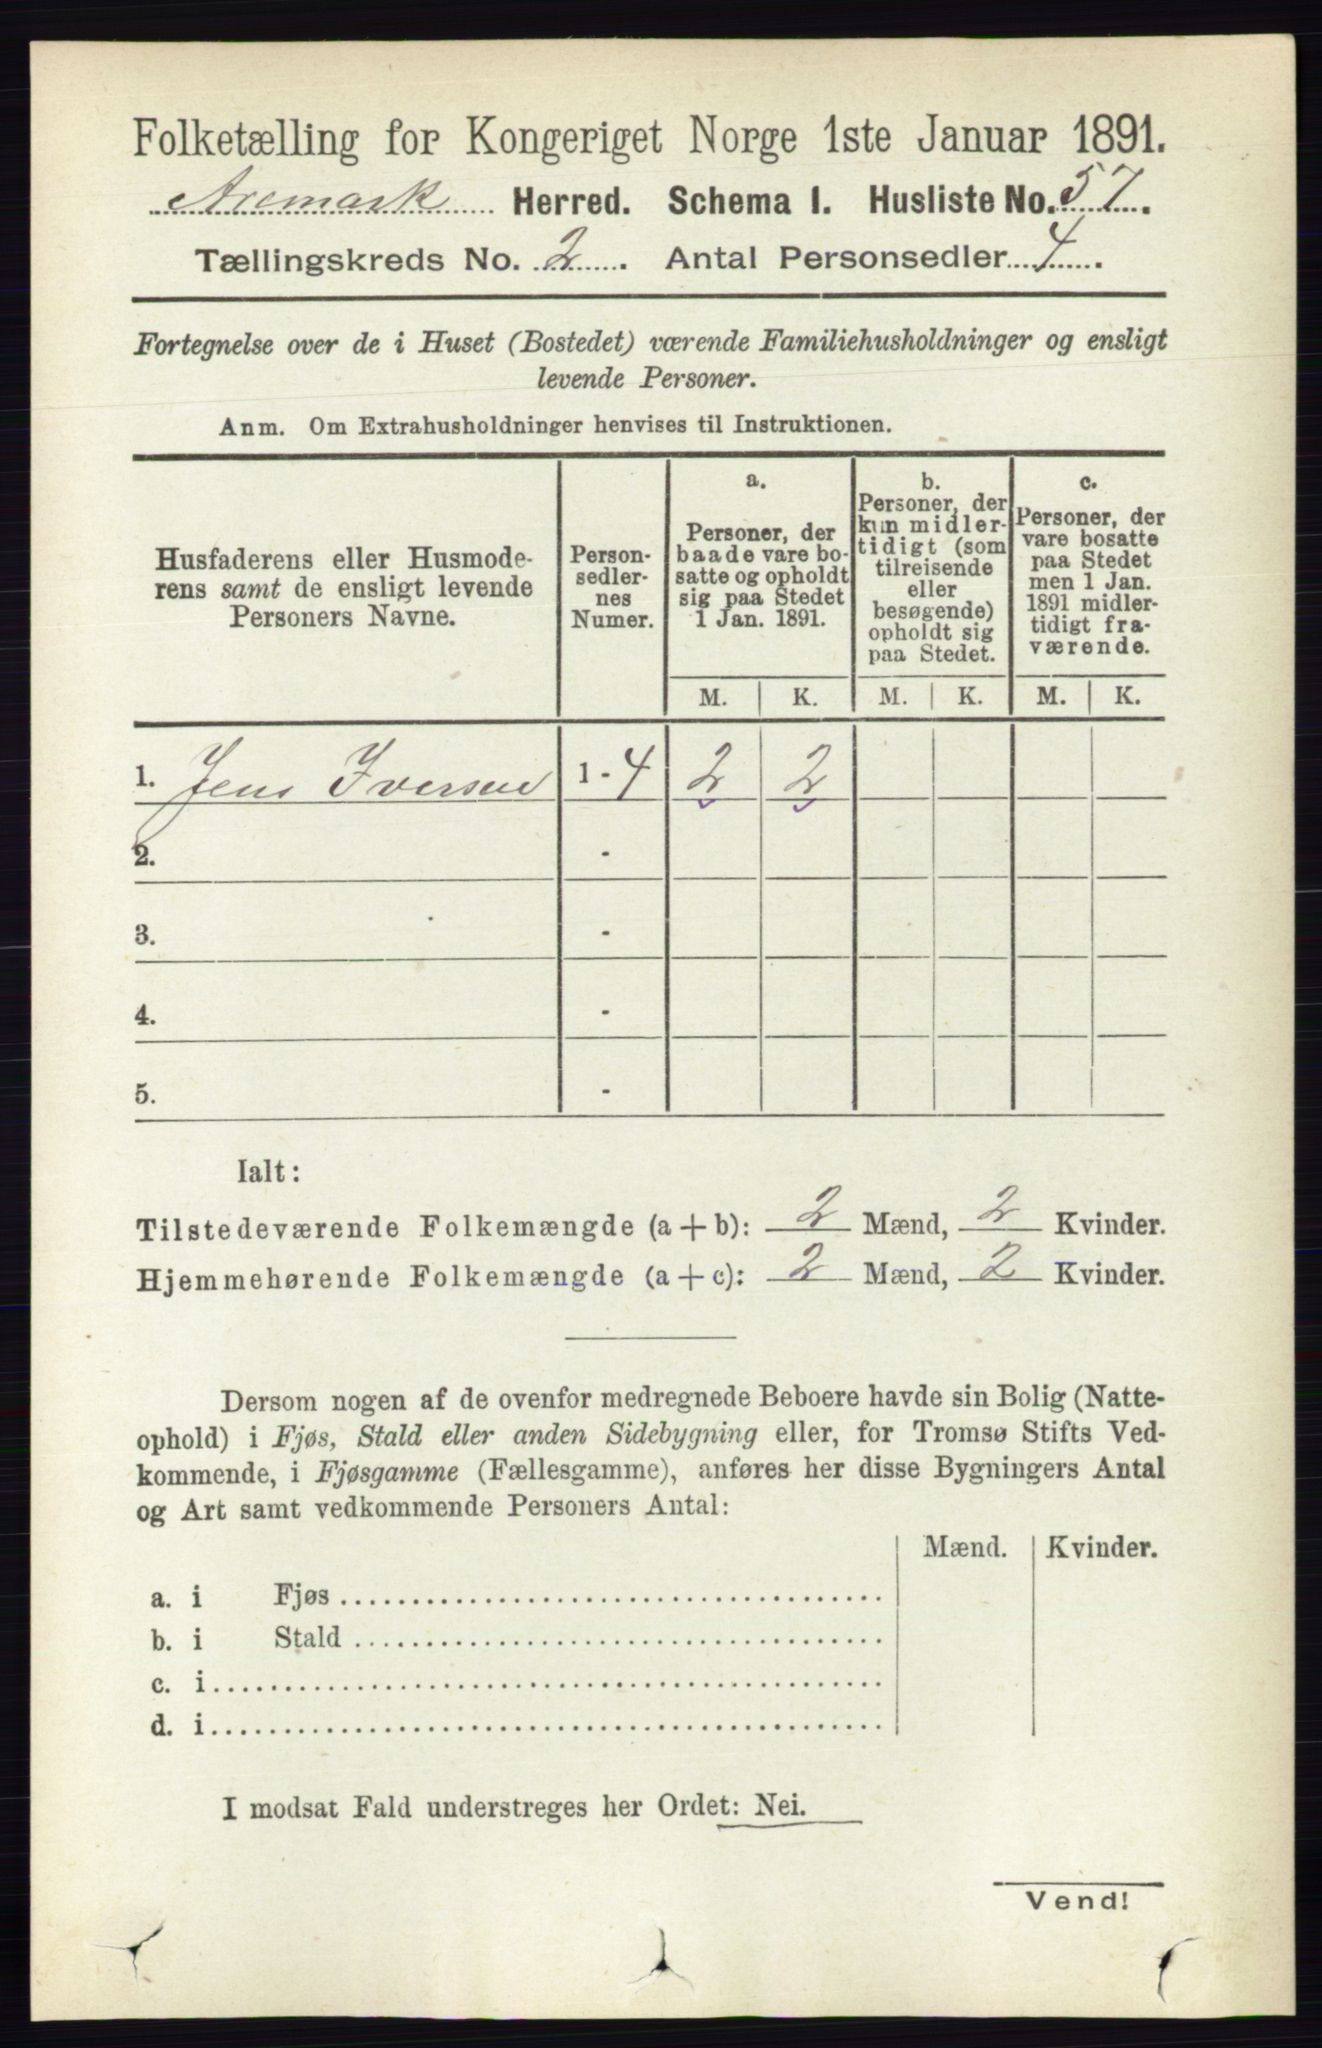 Folketælling for Kongeriget Norge 1ste Januar 1891.
Aremark Herred. Schema I. Husliste No. 57.
Tællingskreds No. 2. Antal Personsedler 4.
Fortegnelse over de i Huset (Bostedet) værende Familiehusholdninger og ensligt
levende Personer.
Anm. Om Extrahusholdninger henvises til Instruktionen.
Husfaderens eller Husmode-
rens samt de ensligt levende
Personers Navne.
Person-
sedler-
nes
Numer.
a.
Personer, der
baade vare bo-
satte og opholdt
sig paa Stedet
1 Jan. 1891.
b.
Personer, der
kun midler-
tidigt (som
tilreisende
eller
besøgende)
opholdt sig
paa Stedet.
c.
Personer, der
vare bosatte
paa Stedet
men 1 Jan.
1891 midler-
tidigt fra-
værende.
M. K. M. K. M. K.
1. Jens Iversen 1 - 4 2 2
2. -
3. -
4. -
5. -
Ialt:
Tilstedeværende Folkemængde (a + b): 2 Mænd, 2 Kvinder.
Hjemmehørende Folkemængde (a + c): 2 Mænd, 2 Kvinder.
Dersom nogen af de ovenfor medregnede Beboere havde sin Bolig (Natte-
ophold) i Fjøs, Stald eller anden Sidebygning eller, for Tromsø Stifts Ved-
kommende, i Fjøsgamme (Fællesgamme), anføres her disse Bygningers Antal
og Art samt vedkommende Personers Antal:
Mænd. Kvinder.
a. i Fjøs
b. i Stald
c. i
d. i
I modsat Fald understreges her Ordet: Nei.
Vend!